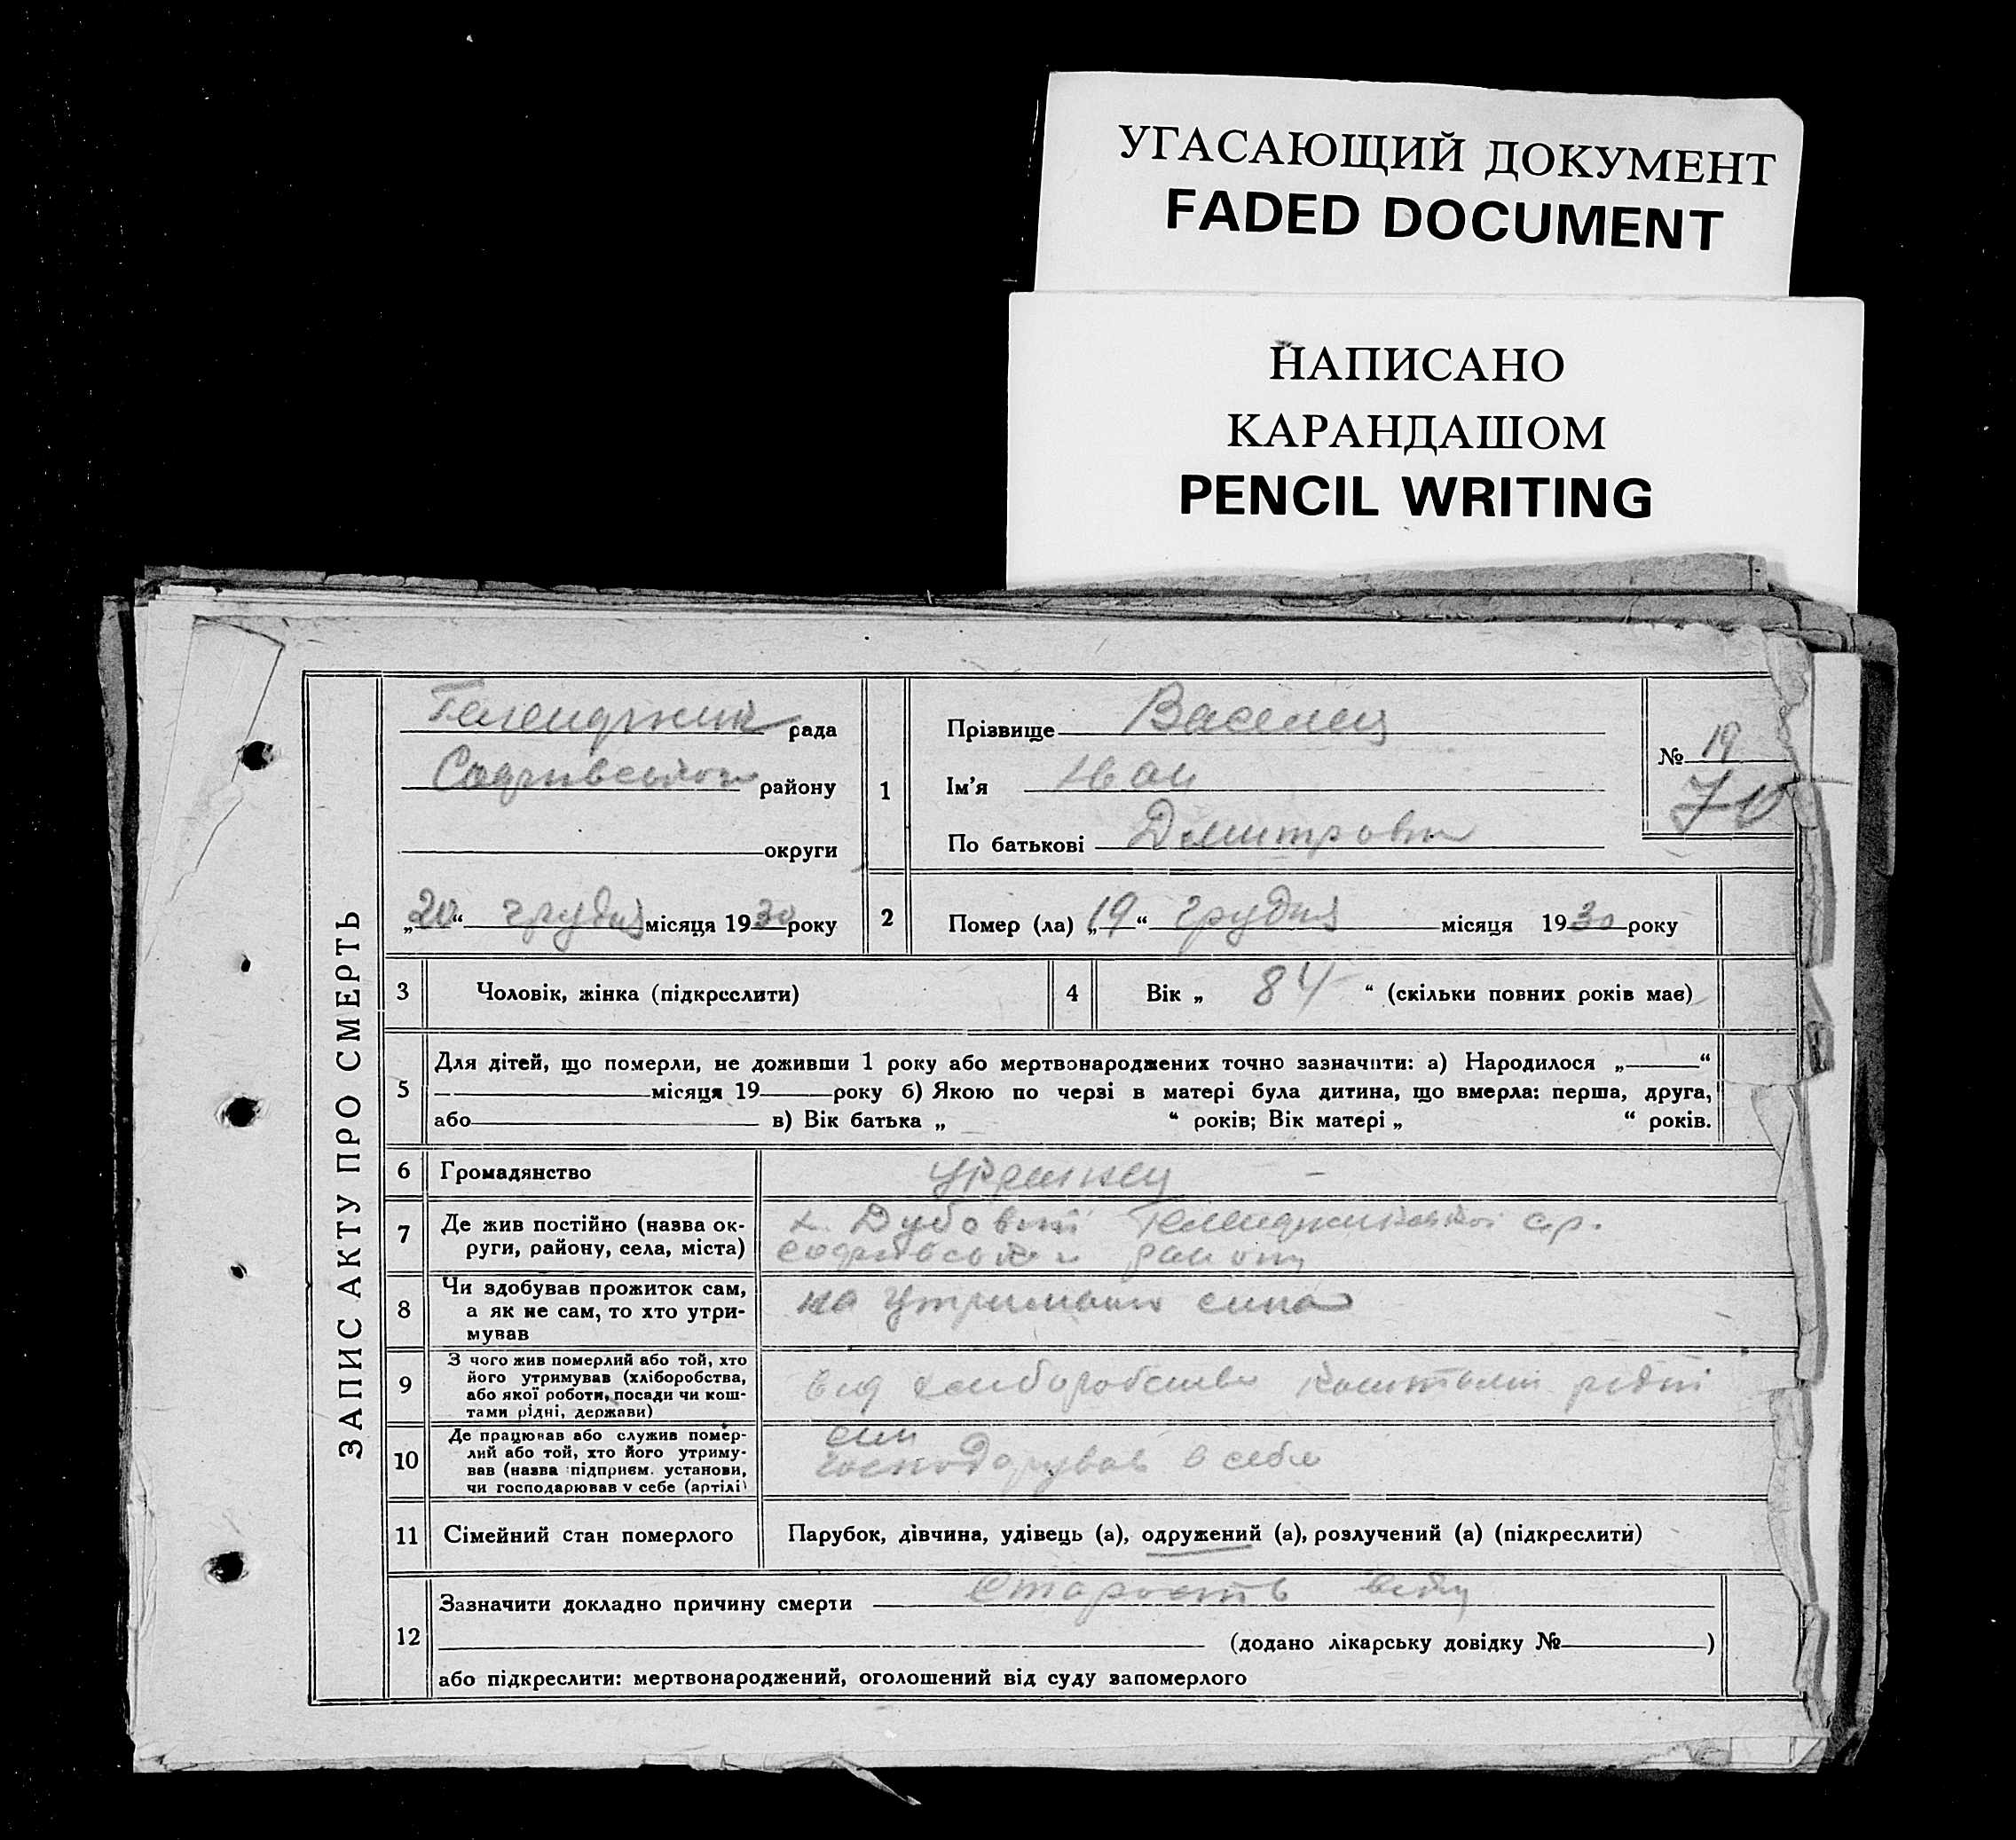 УГАСАЮЩИЙ ДОКУМЕНТ
FADED DOCUMENT
НАПИСАНО
КАРАНДАШОМ
PENCIL WRITING
ЗАПИС АКТУ ПРО СМЕРТЬ
рада
району
округи
„20“ грудня місяця 1930 року
1
Прізвище Василец
Ім'я Иван
По батькові Дмитрови
№ 19
70
2 Помер (ла) „19“ грудня місяця 1930 року
3 Чоловік, жінка (підкреслити)
4 Вік „ 84 “ (скільки повних років має)
5 Для дітей, що померли, не доживши 1 року або мертвонароджених точно зазначити: а) Народилося „ “
місяця 19 року б) Якою по черзі в матері була дитина, що вмерла: перша, друга,
або в) Вік батька „ “ років; Вік матері „ “ років.
6 Громадянство українец
7 Де жив постійно (назва ок-
руги, району, села, міста)
х. Дубовий с.р.
району
8 Чи здобував прожиток сам,
а як не сам, то хто утри-
мував
на утриманні сина
9 З чого жив померлий або той, хто
його утримував (хліборобства,
або якої роботи, посади чи кош-
тами рідні, держави)
від хліборобства коштами рідні
10 Де працював або служив помер-
лий або той, хто його утриму-
вав (назва підприєм. установи,
чи господарював у себе (артілі)
син
господарував в себе
11 Сімейний стан померлого
Парубок, дівчина, удівець (а), одружений (а), розлучений (а) (підкреслити)
12 Зазначити докладно причину смерти старость
(додано лікарську довідку № )
або підкреслити: мертвонароджений, оголошений від суду запомерлого